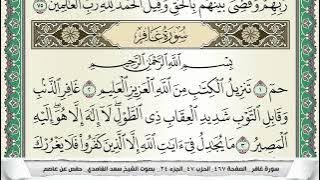 رَبِّهِمْ وَقُضِيَ بَيْنَهُم بِالْحَقِّ وَقِيلَ الْحَمْدُ لِلَّهِ رَبِّ الْعَالَمِينَ ٧٥
سُورَةُ غَافِر
بِسْمِ اللَّهِ الرَّحْمَٰنِ الرَّحِيمِ
حمٓ ١ تَنزِيلُ الْكِتَابِ مِنَ اللَّهِ الْعَزِيزِ الْعَلِيمِ ٢ غَافِرِ الذَّنبِ
وَقَابِلِ التَّوْبِ شَدِيدِ الْعِقَابِ ذِي الطَّوْلِ لَا إِلَٰهَ إِلَّا هُوَ إِلَيْهِ
الْمَصِيرُ ٣ مَا يُجَادِلُ فِي آيَاتِ اللَّهِ إِلَّا الَّذِينَ كَفَرُوا فَلَا يَغْرُرْكَ
سورة غافر - الصفحة ٤٦٧ - الحزب ٤٧ - الجزء ٢٤ - بصوت الشيخ سعد الغامدي - حفص عن عاصم